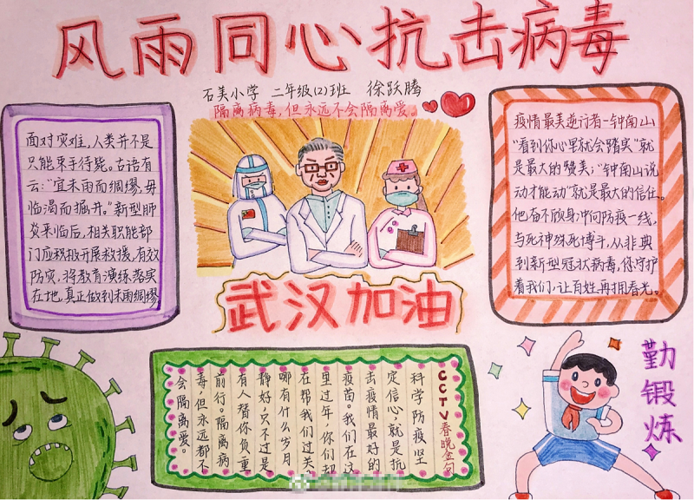 风雨同心抗击病毒
石美小学 二年级(2)班 徐跃腾
隔离病毒,但永远不会隔离爱。
面对灾难,人类并不是
只能束手待毙。古语有
云:"宜未雨而绸缪,毋
临渴而掘井。"新型肺
炎来临后,相关职能部
门应积极开展救援,有效
防灾,将教育演练落实
在地,真正做到未雨绸缪
疫情最美逆行者-钟南山
"看到你心里就会踏实"就
是最大的赞美;"钟南山说
动才能动"就是最大的信任。
他奋不顾身冲向防疫一线,
与死神殊死博斗,从非典
到新型冠状病毒,你守护
着我们,让百姓再拥春光。
武汉加油
CCTV春晚金句
科学防疫坚
定信心,就是抗
击疫情最好的
疫苗。我们在这
里过年,你们却
在帮我们过关,
哪有什么岁月
静好,只不过是
有人替你负重
前行。隔离病
毒,但永远都不
会隔离爱。
勤锻炼